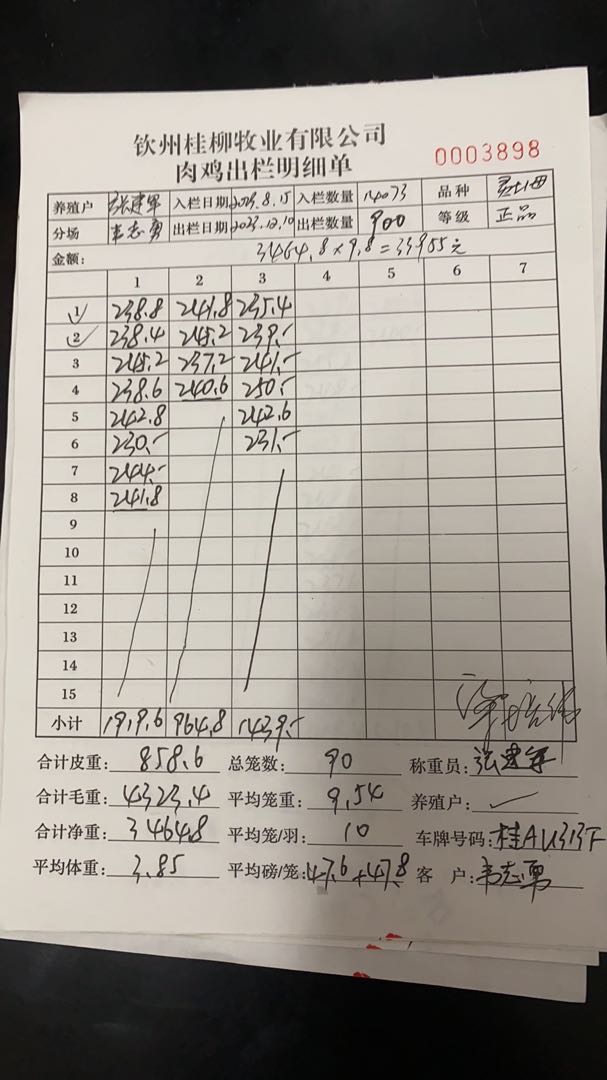 钦州桂柳牧业有限公司
肉鸡出栏明细单
0003898
养殖户 张建军 入栏日期 2023.8.15 入栏数量 14073 品种
分场 韦志勇 出栏日期 2023.12.10 出栏数量 900 等级 正品
金额: 3464.8×9.8=33955元
1 2 3 4 5 6 7
1 238.8 241.8 235.4
2 238.4 245.2 239.-
3 245.2 237.2 241.-
4 238.6 240.6 250.-
5 242.8 242.6
6 230.- 231.-
7 244.-
8 241.8
9
10
11
12
13
14
15
小计 1919.6 964.8 1439.-
合计皮重: 858.6 总笼数: 90 称重员: 张建军
合计毛重: 4323.4 平均笼重: 9.54 养殖户: ✓
合计净重: 3464.8 平均笼/羽: 10 车牌号码:
平均体重: 3.85 平均磅/笼: 47.6+47.8 客 户: 韦志勇